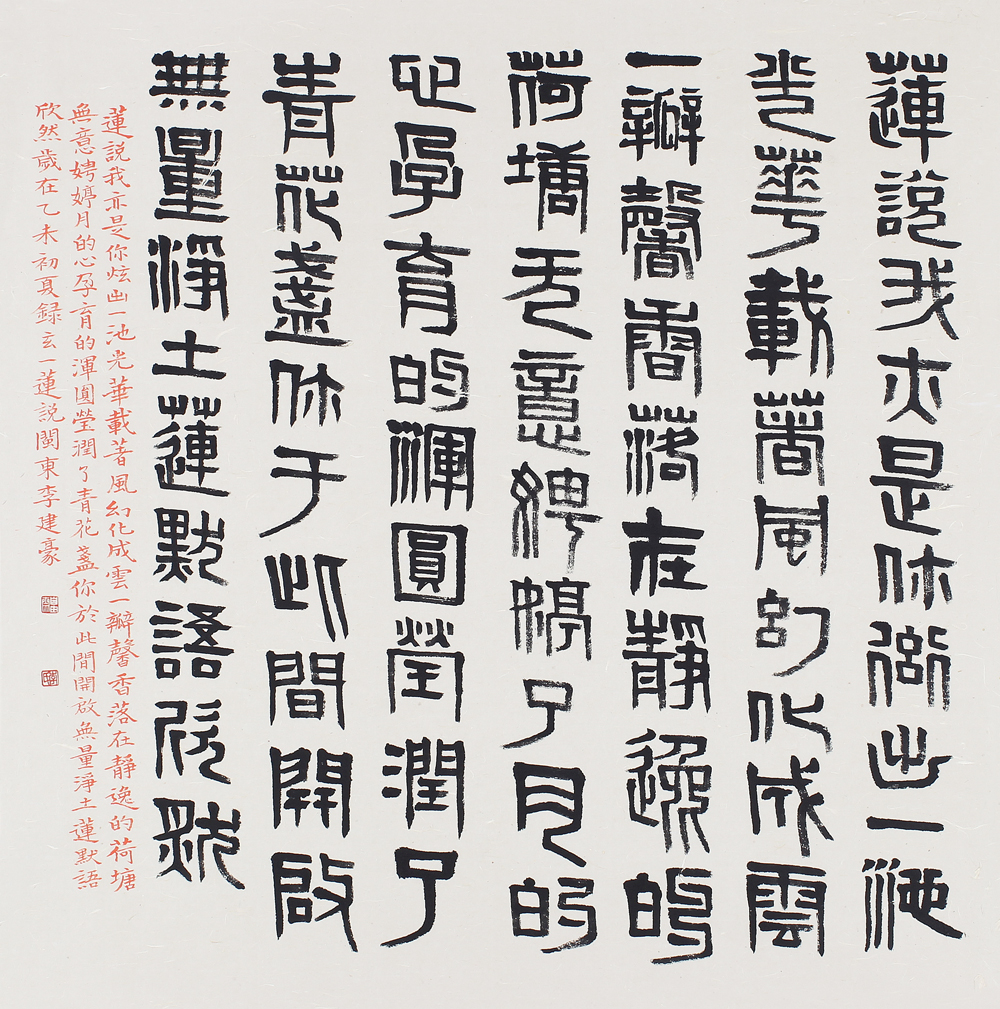 蓮說我亦是你衒出一池
光華載著風幻化成雲
一瓣馨香落在靜逸的
荷塘无意娉婷了月的
心孕育的渾圓瑩潤了
青花盞你于此間開啟
無量淨土蓮默語欣然
蓮說我亦是你炫出一池光華載著風幻化成雲一瓣馨香落在靜逸的荷塘
無意娉婷月的心孕育的渾圓瑩潤了青花盞你於此間開啟無量淨土蓮默語
欣然歲在乙未初夏録玄一蓮説閩東李建豪